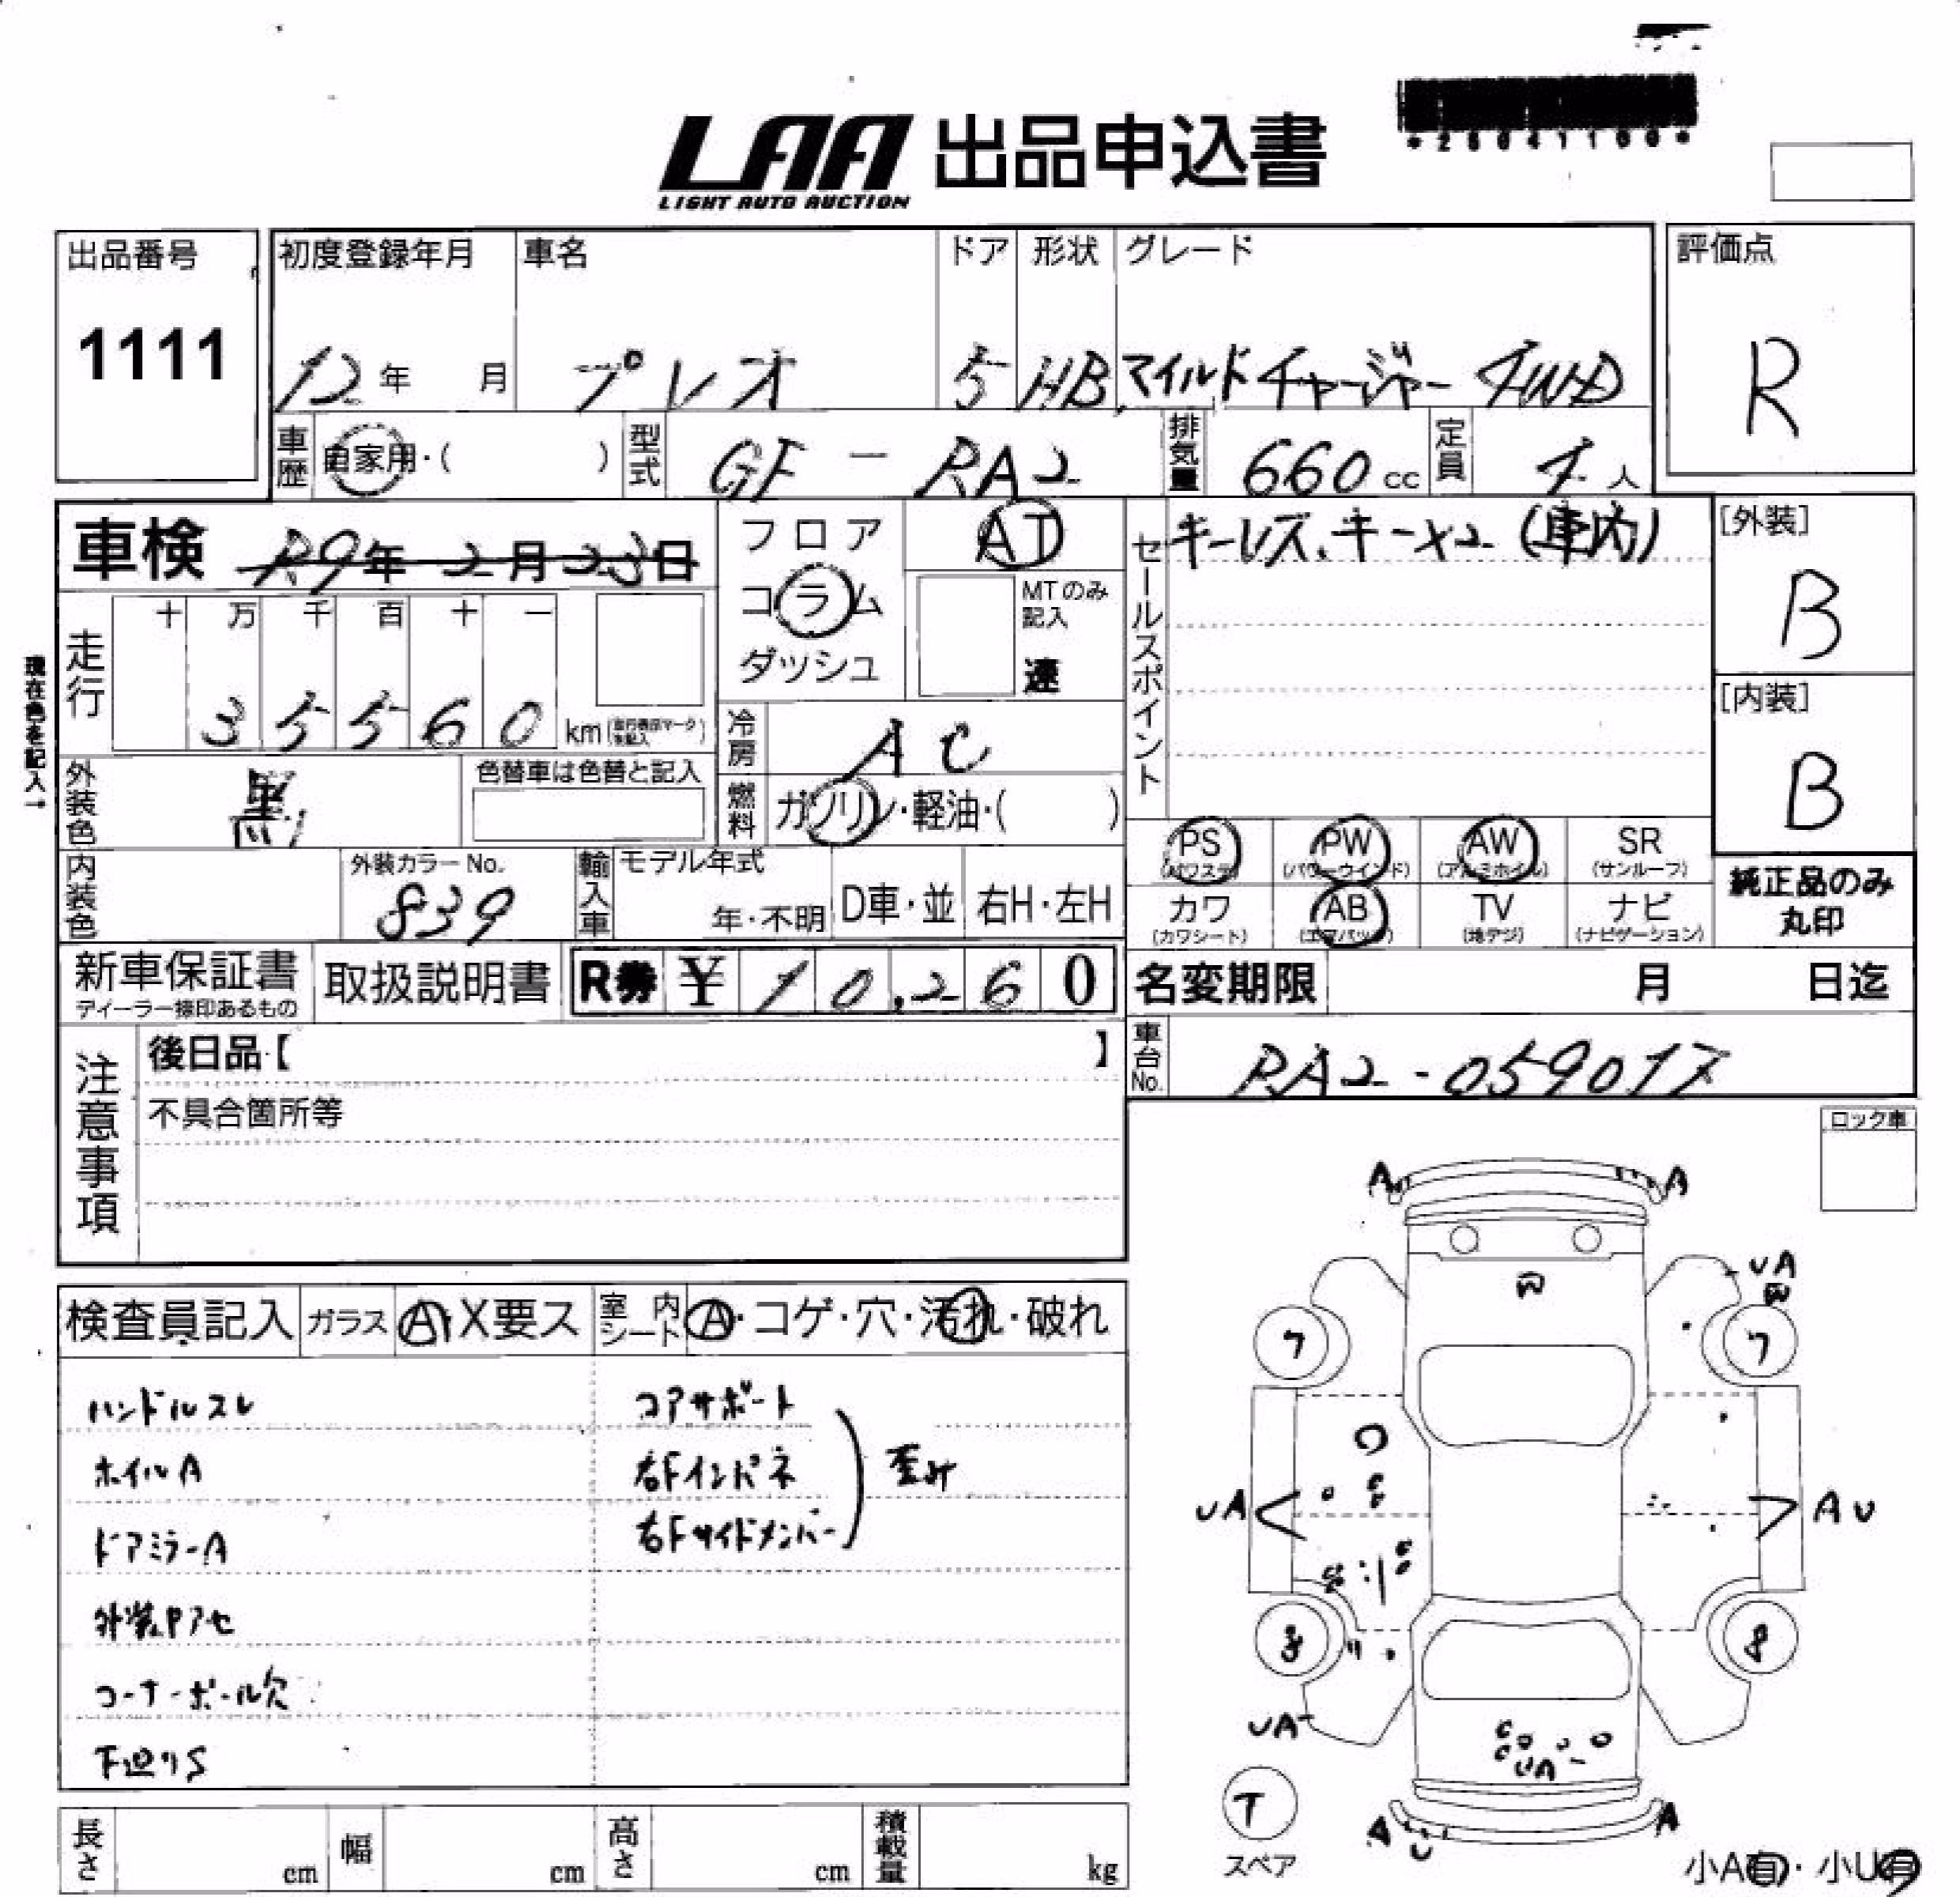 LAA 出品申込書
LIGHT AUTO AUCTION
出品番号
1111
初度登録年月
12年 月
車名
プレオ
ドア
5
形状
HB
グレード
マイルドチャージャー 4WD
評価点
R
車歴 自家用・( )
型式 GF-RA2
排気量 660cc
定員 4人
車検 R9年2月23日
フロア
コラム
ダッシュ
AT
MTのみ記入
速
セールスポイント
キーレス、キー×2 (車内)
[外装]
B
[内装]
B
現在色を記入→
走行
十 万 千 百 十 一
3 5 5 6 0 km
冷房 AC
燃料 ガソリン・軽油・( )
外装色 黒
色替車は色替と記入
内装色
外装カラーNo.
839
輸入車
モデル年式
年・不明
D車・並
右H・左H
PS
(パワステ)
PW
(パワーウインド)
AW
(アルミホイル)
SR
(サンルーフ)
カワ
(カワシート)
AB
(エアバッグ)
TV
(地デジ)
ナビ
(ナビゲーション)
純正品のみ
丸印
新車保証書
ディーラー捺印あるもの
取扱説明書
R券 ¥ 10,260
名変期限 月 日迄
車台No. RA2-059017
注意事項
後日品【 】
不具合箇所等
ロック車
検査員記入
ガラス A・X要ス
室内シート A・コゲ・穴・汚れ・破れ
ハンドルスレ
ホイルA
ドアミラーA
外装中アセ
コーナーポール穴
下廻りS
コアサポート
右Fインパネ
右Fサイドメンバー
歪み
A A
W
UA
W
7 7
UA
AU
8 8
UA
UA
T
スペア
A U A
小A有・小U有
長さ cm
幅 cm
高さ cm
積載量 kg